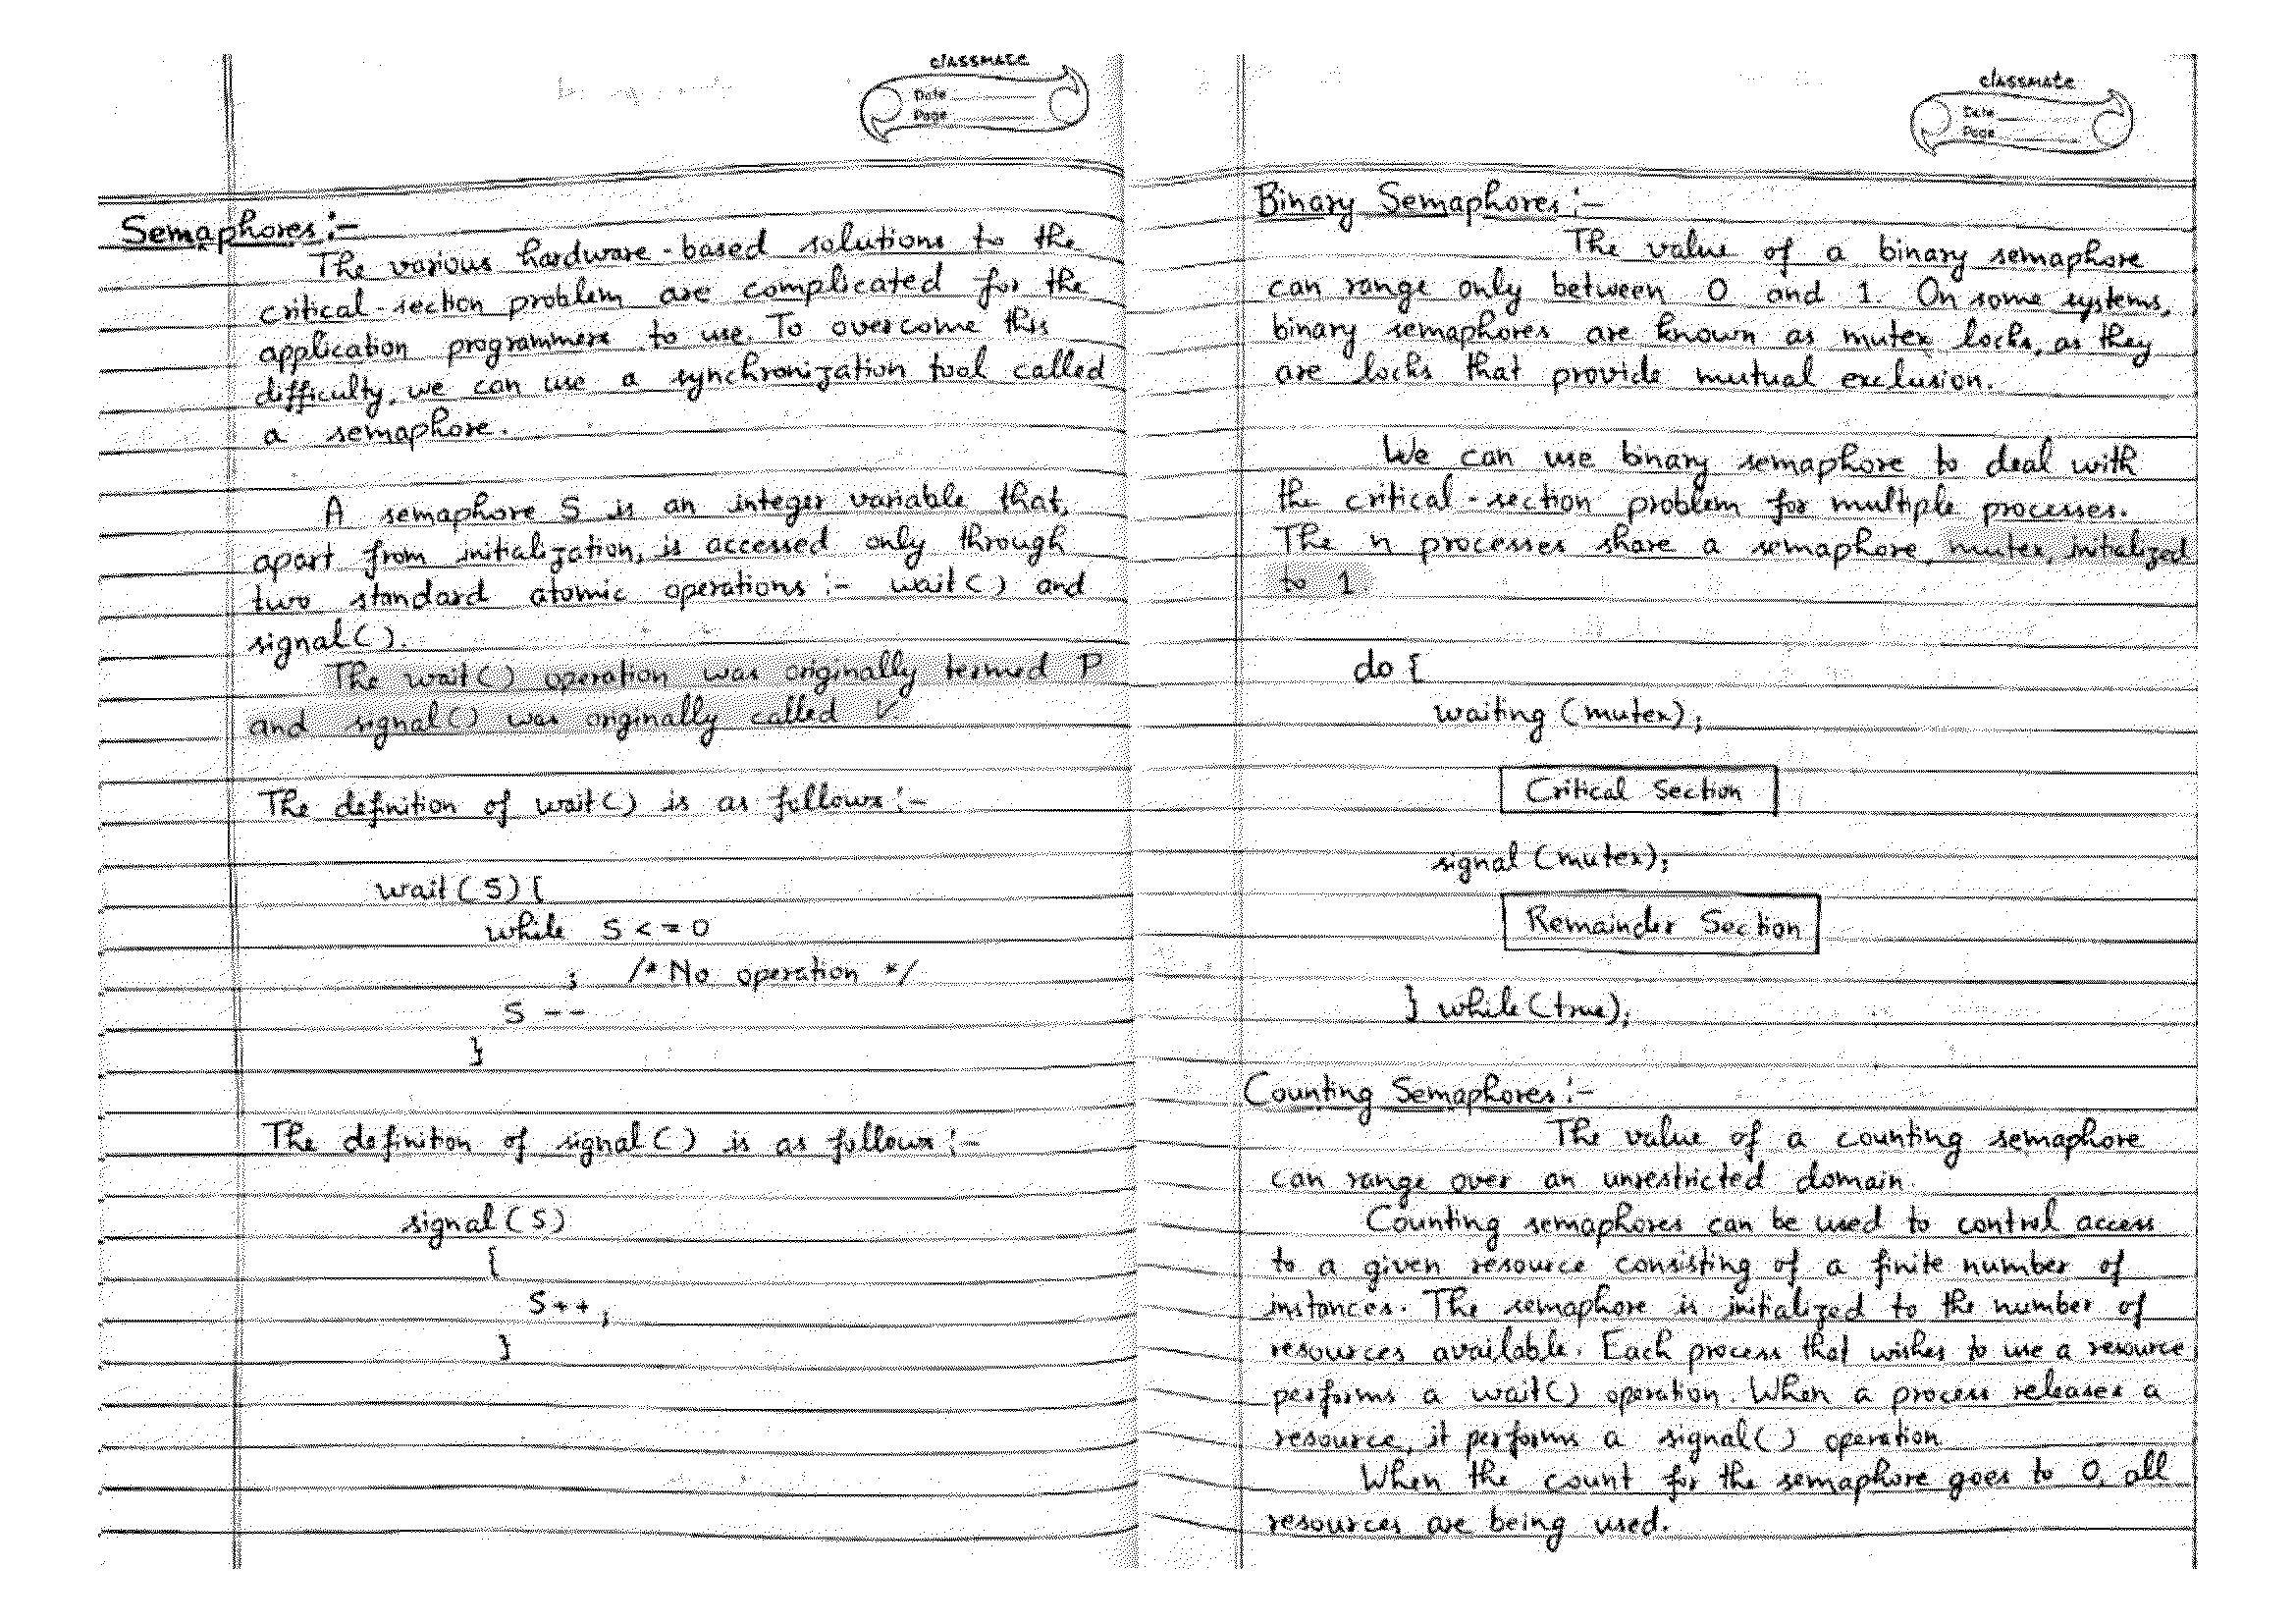 classmate
Date
Page
Semaphores :-
The various hardware-based solutions to the
critical-section problem are complicated for the
application programmers to use. To overcome this
difficulty, we can use a synchronization tool called
a semaphore.
A semaphore S is an integer variable that,
apart from initialization, is accessed only through
two standard atomic operations :- wait() and
signal().
The wait() operation was originally termed P
and signal() was originally called V
The definition of wait() is as follows :-
wait(S){
while S <= 0
; /* No operation */
S --
}
The definition of signal() is as follows :-
signal(S)
{
S++;
}
classmate
Date
Page
Binary Semaphores :-
The value of a binary semaphore
can range only between 0 and 1. On some systems,
binary semaphores are known as mutex locks, as they
are locks that provide mutual exclusion.
We can use binary semaphore to deal with
the critical-section problem for multiple processes.
The n processes share a semaphore, mutex, initialized
to 1
do {
waiting (mutex);
Critical Section
signal (mutex);
Remainder Section
} while (true);
Counting Semaphores :-
The value of a counting semaphore
can range over an unrestricted domain.
Counting semaphores can be used to control access
to a given resource consisting of a finite number of
instances. The semaphore is initialized to the number of
resources available. Each process that wishes to use a resource
performs a wait() operation. When a process releases a
resource, it performs a signal() operation.
When the count for the semaphore goes to 0, all
resources are being used.